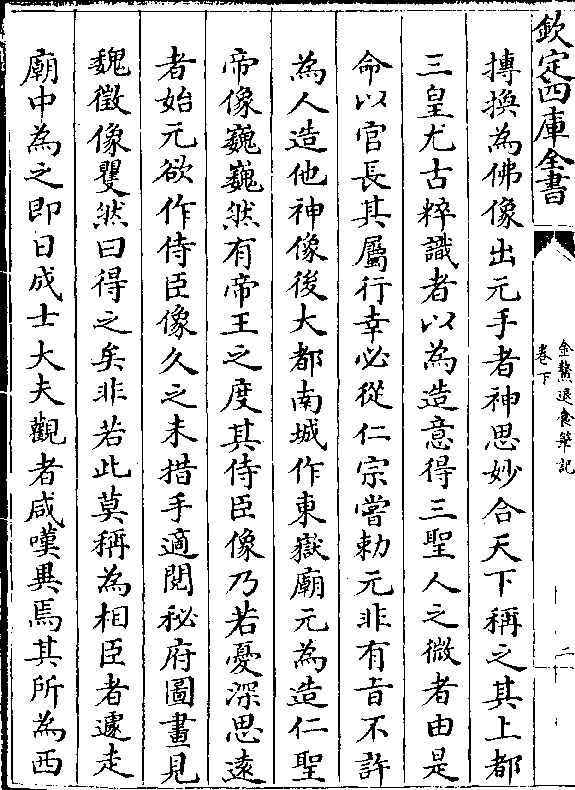 欽定四庫全書
金鰲退食筆記
卷下
二
摶換為佛像出元手者神思妙合天下稱之其上都
三皇尤古粹識者以為造意得三聖人之微者由是
命以官長其屬行幸必從仁宗嘗勅元非有旨不許
為人造他神像後大都南城作東嶽廟元為造仁聖
帝像巍巍然有帝王之度其侍臣像乃若憂深思遠
者始元欲作侍臣像久之未措手適閱秘府圖畫見
魏徵像矍然曰得之矣非若此莫稱為相臣者遽走
廟中為之即日成士大夫觀者咸嘆異焉其所為西